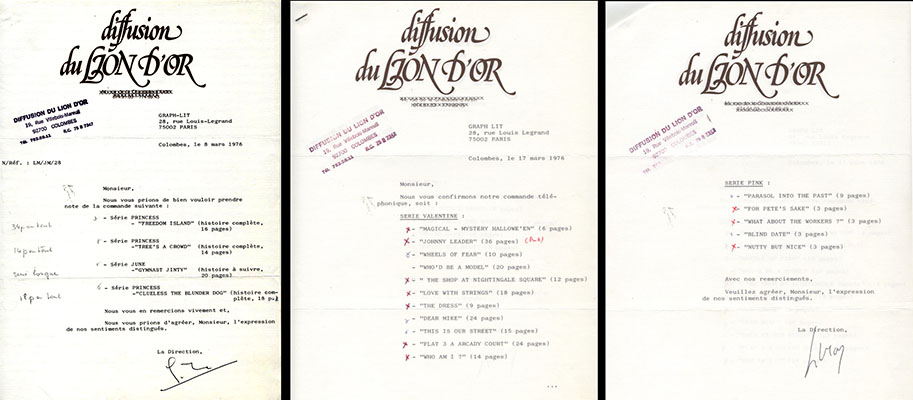 diffusion
du LION D'OR
DIFFUSION DU LION D'OR
19, Rue Villebois-Mareuil
92700 COLOMBES
GRAPH-LIT
28, rue Louis-Legrand
75002 PARIS
Colombes, le 8 mars 1976
N/Réf. : LM/JM/28
Monsieur,
Nous vous prions de bien vouloir prendre
note de la commande suivante :
- Série PRINCESS
-"FREEDOM ISLAND" (histoire complète,
14 pages)
- Série PRINCESS
-"TREE'S A CROWD" (histoire complète,
14 pages)
- Série JUNE
-"GYMNAST JINTY" (histoire à suivre,
20 pages)
- Série PRINCESS
-"CLUELESS THE BLUNDER DOG" (histoire com-
plète, 18 p.)
Nous vous en remercions vivement et,
Nous vous prions d'agréer, Monsieur, l'expression
de nos sentiments distingués.
La Direction,
diffusion
du LION D'OR
DIFFUSION DU LION D'OR
19, Rue Villebois-Mareuil
92700 COLOMBES
GRAPH LIT
28, rue Louis Legrand
75002 PARIS
Colombes, le 17 mars 1976
Monsieur,
Nous vous confirmons notre commande télé-
phonique, soit :
SERIE VALENTINE :
x- "MAGICAL - MYSTERY HALLOWE'EN" (6 pages)
x- "JOHNNY LEADER" (36 pages)
- "WHEELS OF FEAR" (10 pages)
- "WHO'D BE A MODEL" (20 pages)
x- " THE SHOP AT NIGHTINGALE SQUARE" (12 pages)
x- "LOVE WITH STRINGS" (18 pages)
x- "THE DRESS" (9 pages)
- "DEAR MIKE" (24 pages)
- "THIS IS OUR STREET" (15 pages)
x- "FLAT 3 A ARCADY COURT" (24 pages)
x- "WHO AM I ?" (14 pages)
...
diffusion
du LION D'OR
DIFFUSION DU LION D'OR
19, Rue Villebois-Mareuil
92700 COLOMBES
SERIE PINK :
- "PARASOL INTO THE PAST" (9 pages)
x- "FOR PETE'S SAKE" (3 pages)
x- "WHAT ABOUT THE WORKERS ?" (3 pages)
- "BLIND DATE" (3 pages)
x- "NUTTY BUT NICE" (3 pages)
Avec nos remerciements,
Veuillez agréer, Monsieur, l'expression
de nos sentiments distingués.
La Direction,